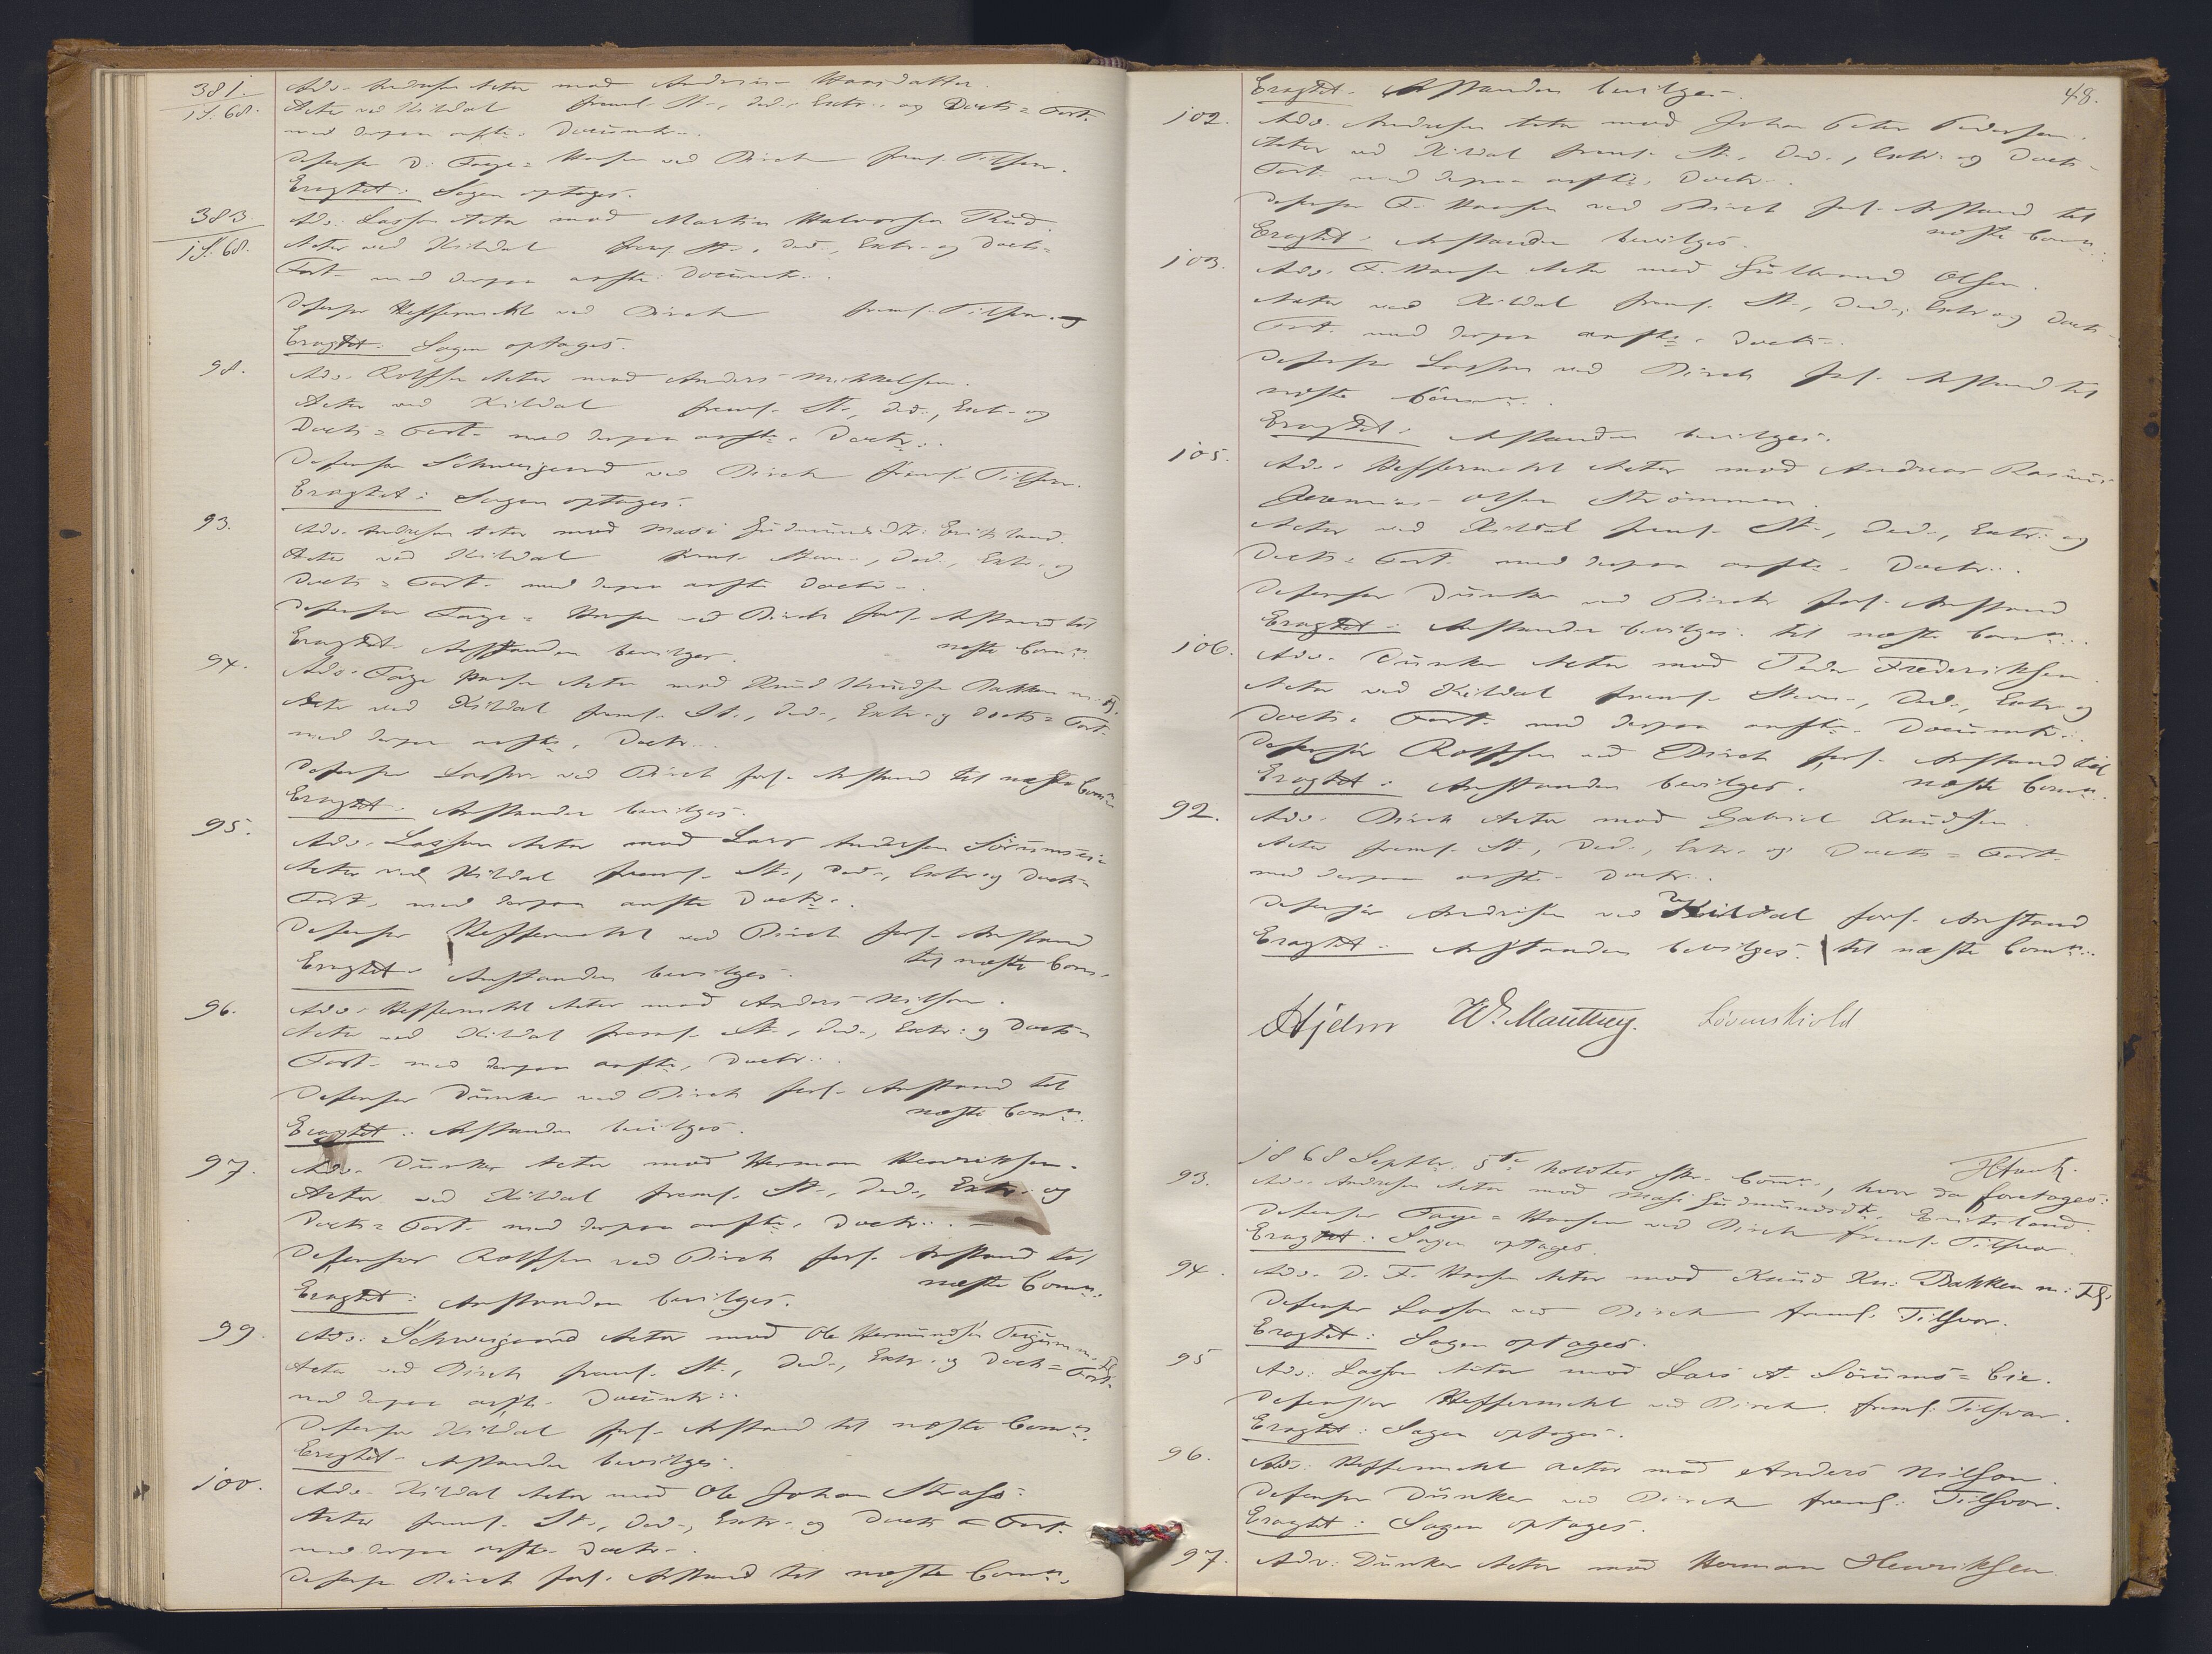 381.
1S. 68.
Adv. Andresen Actor mod Andrine Hansdatter.
Actor ved Kildal freml. St., Ded., Extr. og Docts = Fort.
med derpaa anfte. Documtr.
Defensor D. Faye = Hansen ved Birch freml. Tilsvar.
Eragtet: Sagen optages.
383.
1S. 68.
Adv. Lasson Actor mod Martin Halvorsen Rud.
Actor ved Kildal freml. St., Ded., Extr. og Docts =
Fort. med derpaa anfte. Documtr.
Defensor Heffermehl ved Birch freml. Tilsvar.
Eragtet: Sagen optages.
98.
Adv. Rolfsen Actor mod Anders Mikkelsen.
Actor ved Kildal freml. St., Ded., Extr. og
Docts = Fort. med derpaa anfte. Doctr.
Defensor Schweigaard ved Birch freml. Tilsvar.
Eragtet: Sagen optages.
93.
Adv. Andresen Actor mod Masi Gudmundsdtr. Eritsland.
Actor ved Kildal freml. Stevn., Ded., Extr. og
Docts = Fort. med derpaa anfte Doctr.
Defensor Faye = Hansen ved Birch forl. Anstand til
næste Comn.
Eragtet. Anstanden bevilges.
94.
Adv. Faye Hansen Actor mod Knud Knudsen Bakken m. Fl.
Actor ved Kildal freml. St., Ded., Extr. og Docts = Fort.
med derpaa anfte. Doctr.
Defensor Lasson ved Birch forl. Anstand til næste Comn
Eragtet. Anstanden bevilges.
95.
Adv. Lasson Actor mod Lars Andersen Sörumseie
Actor ved Kildal freml. St., Ded., Extr. og Docts =
Fort. med derpaa anfte Doctr.
Defensor Heffermehl ved Birch forl. Anstand
til næste Com.
Eragtet. Anstanden bevilges.
96.
Adv. Heffermehl Actor mod Anders Nilson.
Actor ved Kildal freml. St., Ded., Extr: og Docts =
Fort. med derpaa anfte. Doctr.
Defensor Dunker ved Birch forl. Anstand til
næste Comn.
Eragtet: Anstanden bevilges.
97.
Adv. Dunker Actor mod Herman Henriksen.
Actor ved Kildal freml. St., Ded., Extr. og
Docts = Fort. med derpaa anfte. Doctr.
Defensor Rolfsen ved Birch forl. Anstand til
næste Comn.
Eragtet: Anstanden bevilges.
99.
Adv. Schweigaard Actor mod Ole Hermundsen m. Fl.
Actor ved Birch freml. St., Ded., Extr. og Docts = Fort.
med derpaa anfte. Documtr.
Defensor Kildal forl. Anstand til næste Comn.
Eragtet. Anstanden bevilges.
100.
Adv. Kildal Actor mod Ole Johan Strass =
Actor freml. St., Ded., Extr. og Docts = Fort.
med derpaa anfte. Doctr.
Defensor Birch forl. Anstand til næste Comn.
48.
Eragtet. Anstanden bevilges.
102.
Adv. Andresen Actor mod Johan Peter Pedersen.
Actor ved Kildal freml. St., Ded., Extr. og Docts =
Fort. med derpaa anfte. Doctr.
Defensor F. Hansen ved Birch forl. Anstand til
næste Comn.
Eragtet: Anstanden bevilges.
103.
Adv. F. Hansen Actor mod Gulbrand Olsen.
Actor ved Kildal freml. St., Ded., Extr. og Docts =
Fort. med derpaa anfte. Doctr.
Defensor Lasson ved Birch forl. Anstand til
næste Comn.
Eragtet. Anstanden bevilges.
105.
Adv. Heffermehl Actor mod Andreas Rasmus
Jeremias Olsen Strömmen.
Actor ved Kildal freml. St., Ded., Extr. og
Docts = Fort. med derpaa anfte. Doctr.
Defensor Dunker ved Birch forl. Anstand
Eragtet. Anstanden bevilges. til næste Comn.
106.
Adv. Dunker Actor mod Peder Frederiksen.
Actor ved Kildal freml. Stevn., Ded., Extr. og
Docts = Fort. med derpaa anfte. Documtr.
Defensor Rolfsen ved Birch forl. Anstand til
næste Comn.
Eragtet: Anstanden bevilges.
92.
Adv. Birch Actor mod Gabriel Knudsen.
Actor freml. St., Ded., Extr. og Docts = Fort.
med derpaa anfte. Doctr.
Defensor Andresen ved Kildal forl. Anstand
Eragtet. Anstanden bevilges. | til næste Comn.
Hjelm W. Manthey. Løvenskiold
1868 Septbr. 5te holdtes Comn., hvor da foretoges:
93.
Adv. Andresen Actor mod Masi Gudmundsdtr. Eritsland.
Defensor Faye = Hansen ved Birch freml. Tilsvar.
Eragtet: Sagen optages.
94.
Adv. D. F. Hansen Actor mod Knud Kn. Bakken m: Fl.
Defensor Lasson ved Birch freml. Tilsvar.
Eragtet: Sagen optages.
95
Adv. Lasson Actor mod Lars A. Sörums = Eie.
Defensor Heffermehl ved Birch. freml: Tilsvar.
Eragtet: Sagen optages.
96.
Adv. Heffermehl Actor mod Anders Nilson.
Defensor Dunker ved Birch freml: Tilsvar.
Eragtet: Sagen optages.
97.
Adv. Dunker Actor mod Herman Henriksen.